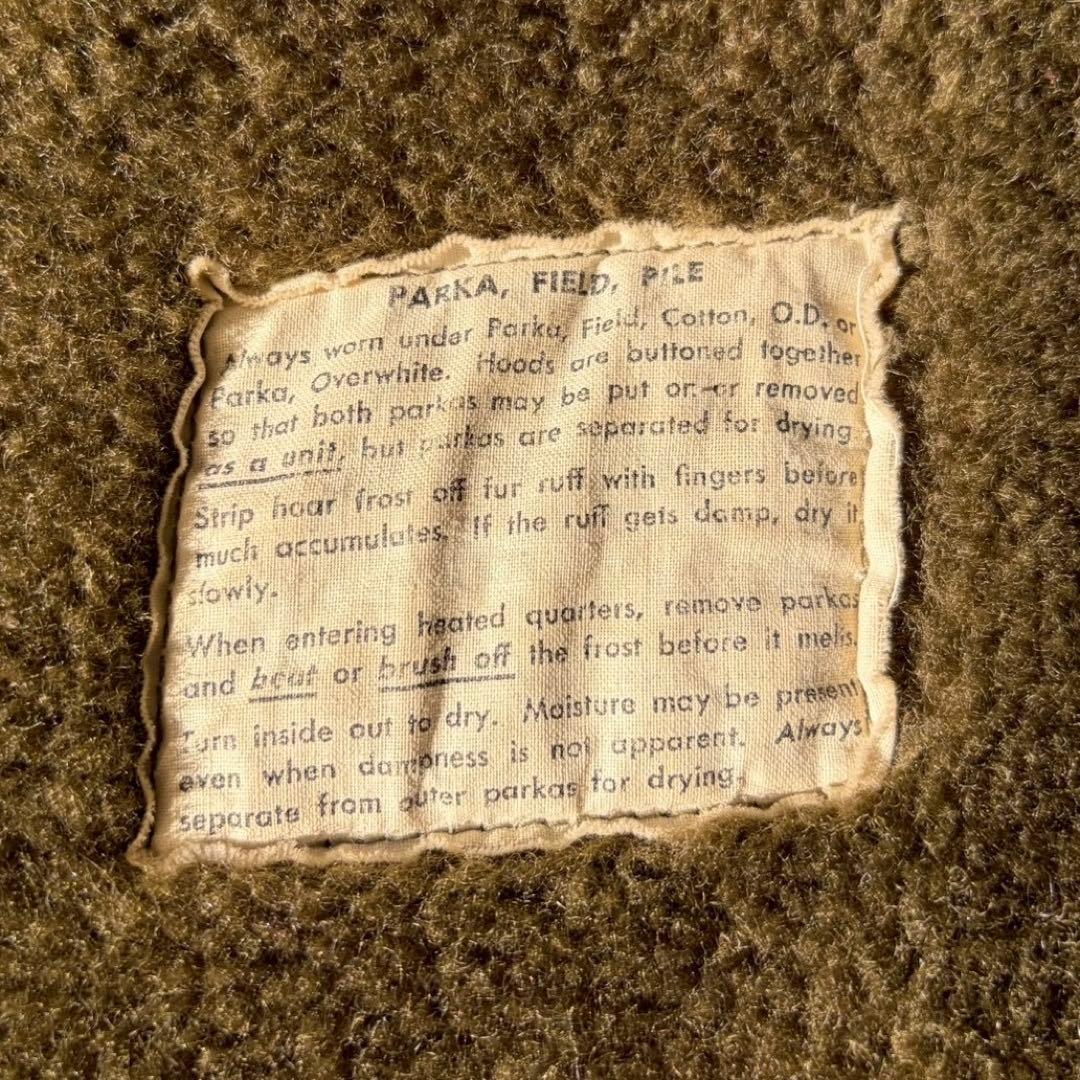 PARKA, FIELD, PILE
Always worn under Parka, Field, Cotton, O.D. or
Parka, Overwhite. Hoods are buttoned together
so that both parkas may be put on or removed
as a unit, but parkas are separated for drying
Strip hoar frost off fur ruff with fingers before
much accumulates. If the ruff gets damp, dry it
slowly.
When entering heated quarters, remove parkas
and beat or brush off the frost before it melts.
Turn inside out to dry. Moisture may be present
even when dampness is not apparent. Always
separate from outer parkas for drying.